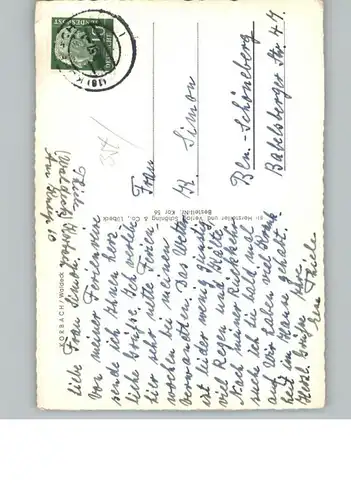 KORBACH/Waldeck
Thiele
(Waldeck) Korbach
Am Kniep 10
Liebe Frau Simon.
Von meiner Ferienreise
sende ich Ihnen herz-
liche Grüße. Ich verlebe
hier sehr nette Ferien-
wochen bei meinen
Verwandten. Das Wetter
ist leider wenig günstig
viel Regen und Kälte
Nach meiner Rückkehr
suche ich Sie bald mal
auf. Wir haben viel Krank-
heit im Hause gehabt.
Herzl. Grüße Ihre
Thiele
Hersteller und Verlag Schöning & Co., Lübeck
Bestell-Nr. Kor 36
10
DEUTSCHE
BUNDESPOST
(16) KORBACH
Frau
H. Simon
Bln.-Schöneberg
Babelsberger Str. 47.